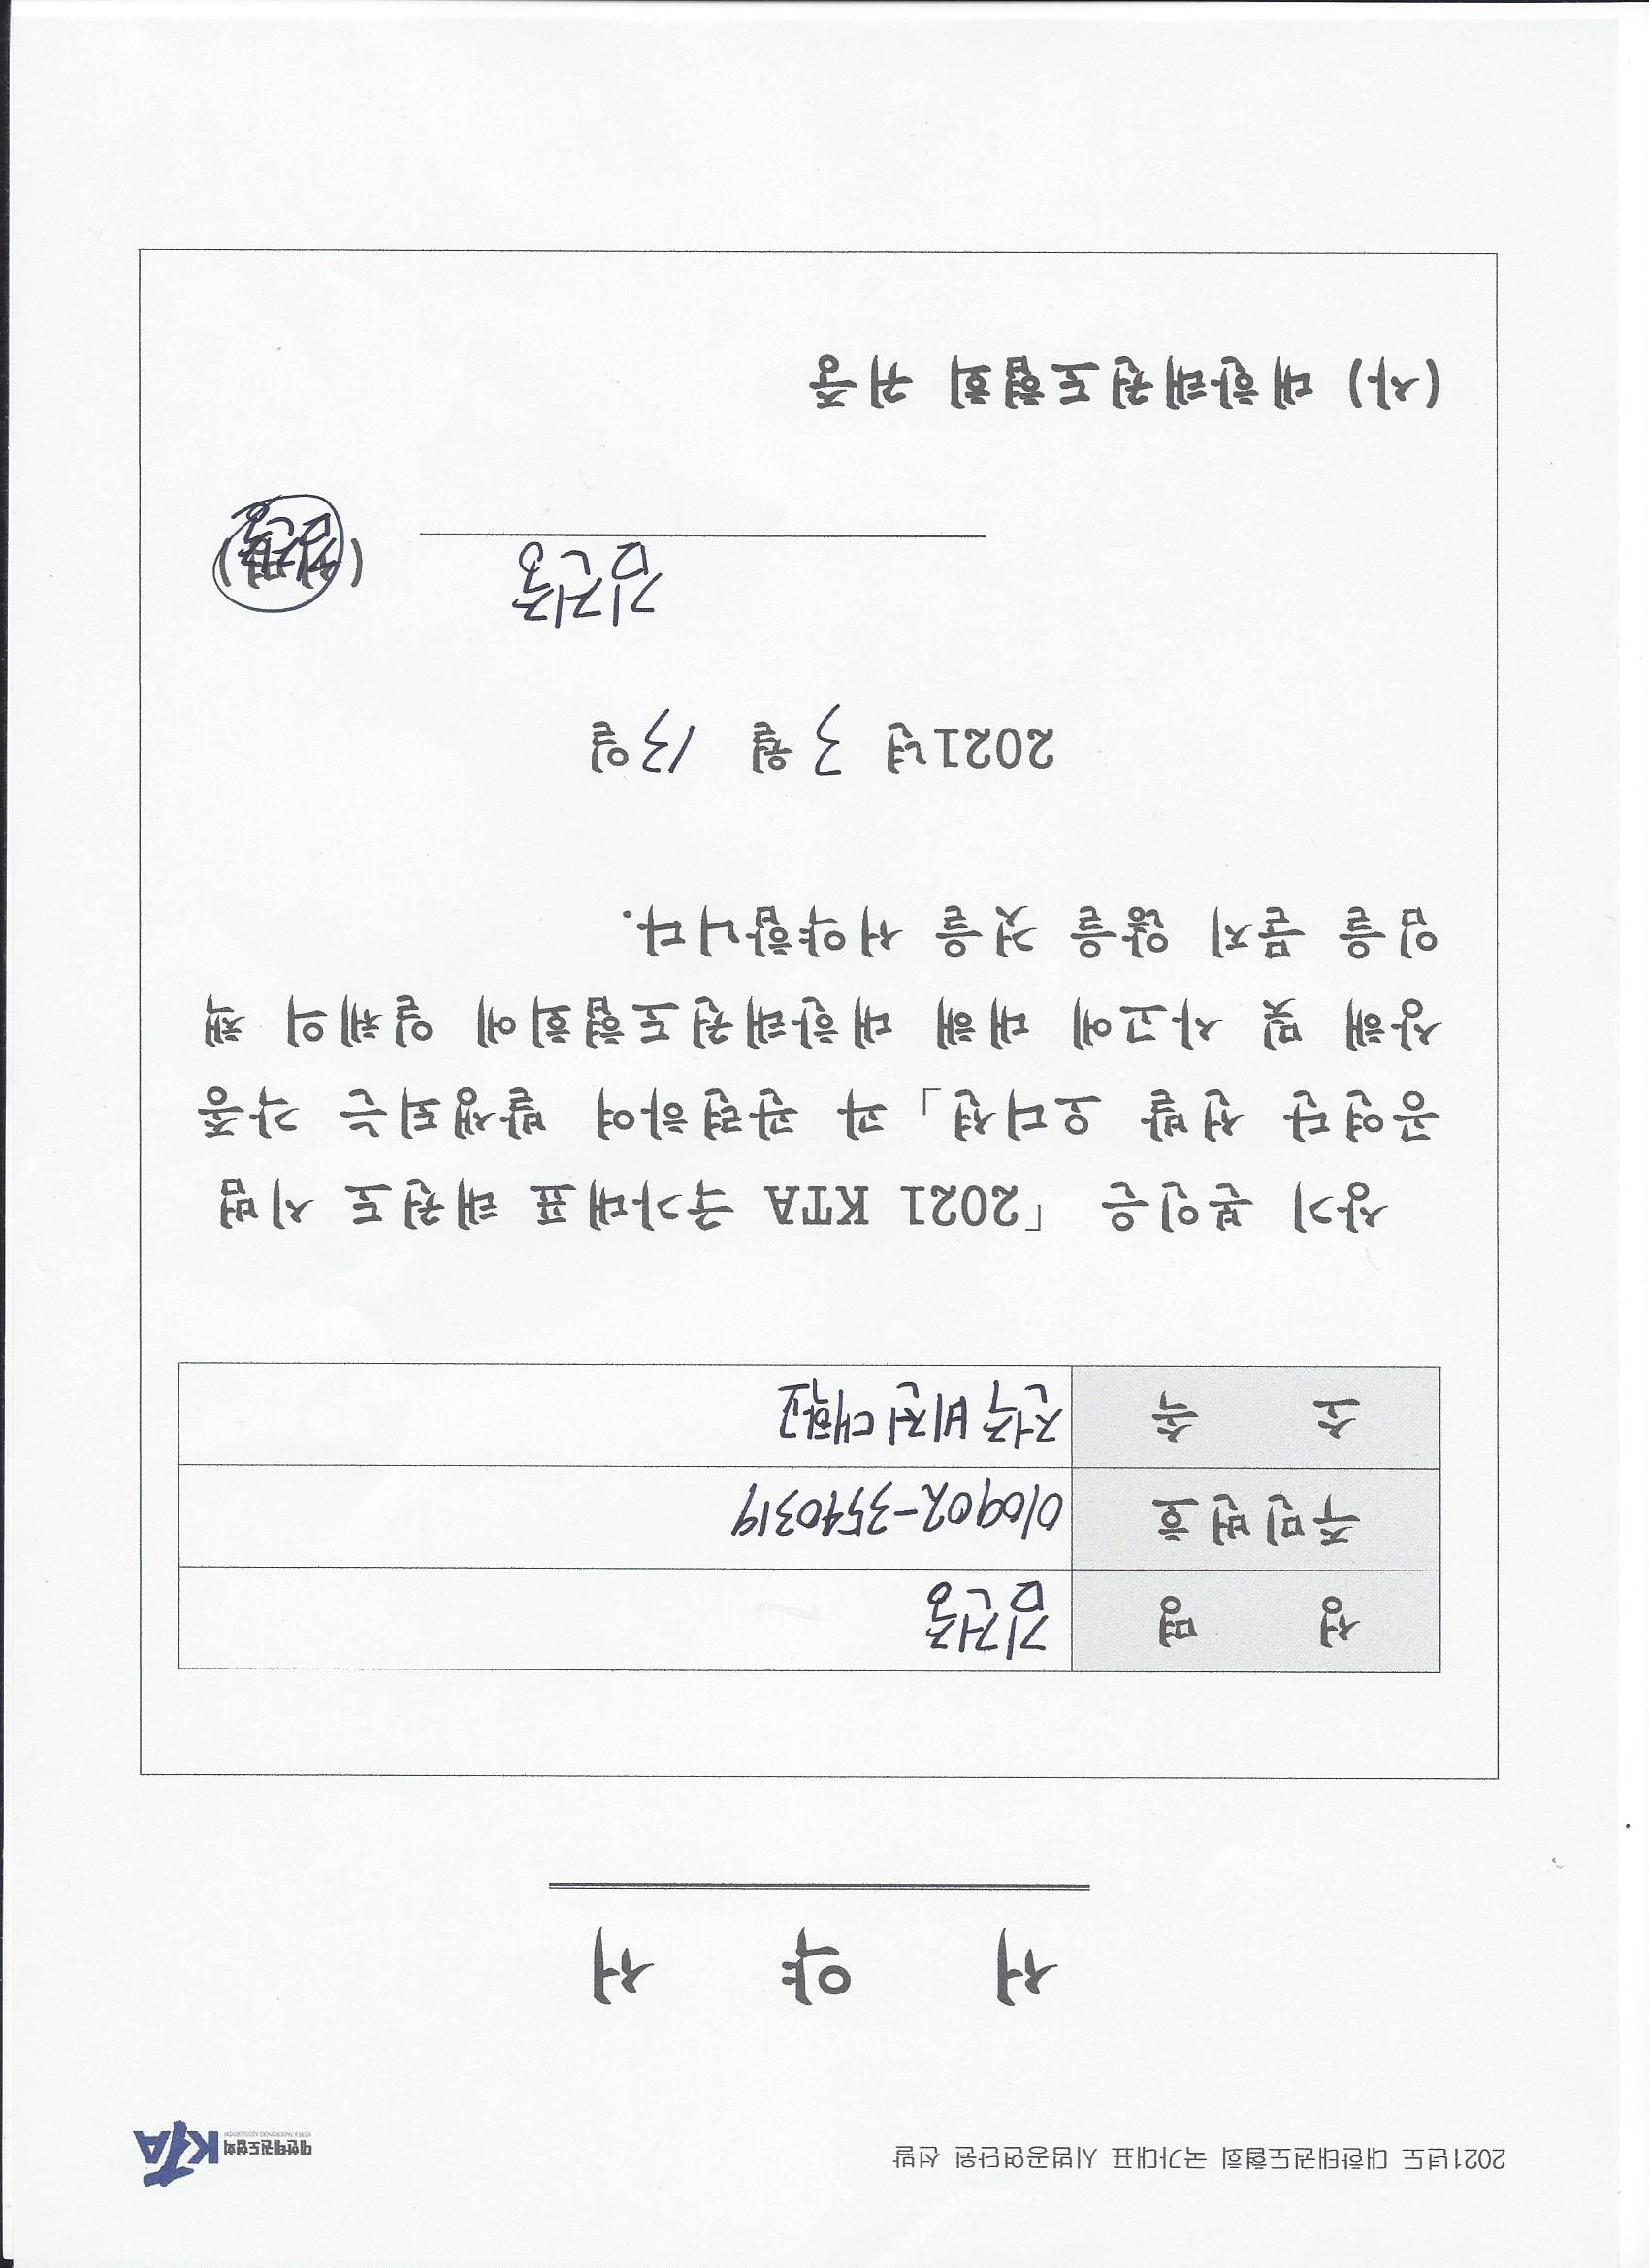 2021년도 대한태권도협회 국가대표 시범공연단원 선발
KTA 대한태권도협회
KOREA TAEKWONDO ASSOCIATION
서 약 서
성 명 김건중
주민번호 010902-3540319
소 속 전주비전대학교
상기 본인은 「2021 KTA 국가대표 태권도 시범
공연단 선발 오디션」과 관련하여 발생되는 각종
상해 및 사고에 대해 대한태권도협회에 일체의 책
임을 묻지 않을 것을 서약합니다.
2021년 3월 13일
김건중
(사) 대한태권도협회 귀중